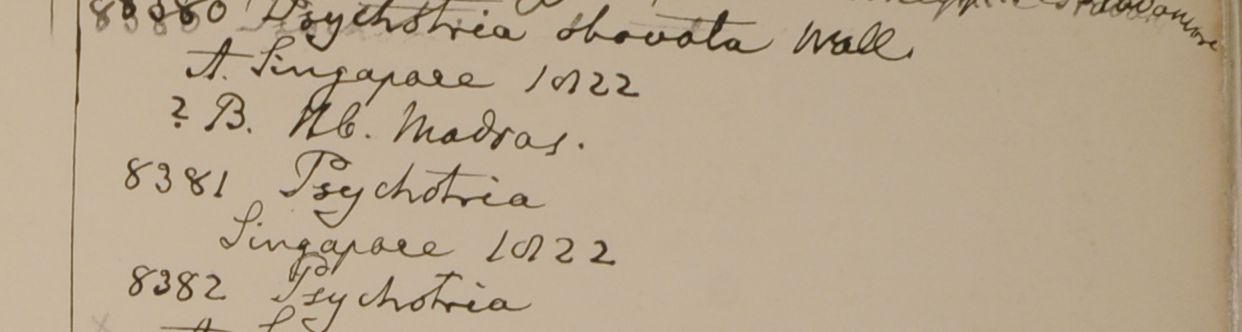 8380 Psychotria obovata Wall.
A. Singapore 1822
? B. Hb. Madras.
8381 Psychotria
Singapore 1822
8382 Psychotria